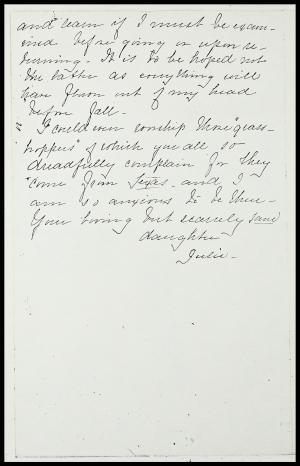 and learn if I must be exam-
ined before going or upon re-
turning. It is to be hoped not
the latter as everything will
have flown out of my head
before fall -
"I could even worship those "grass-
hoppers" of which you all so
dreadfully complain for they
"come from Texas - and I
am so anxious to be there -
Your loving but scarcely sane
daughter
Julie -